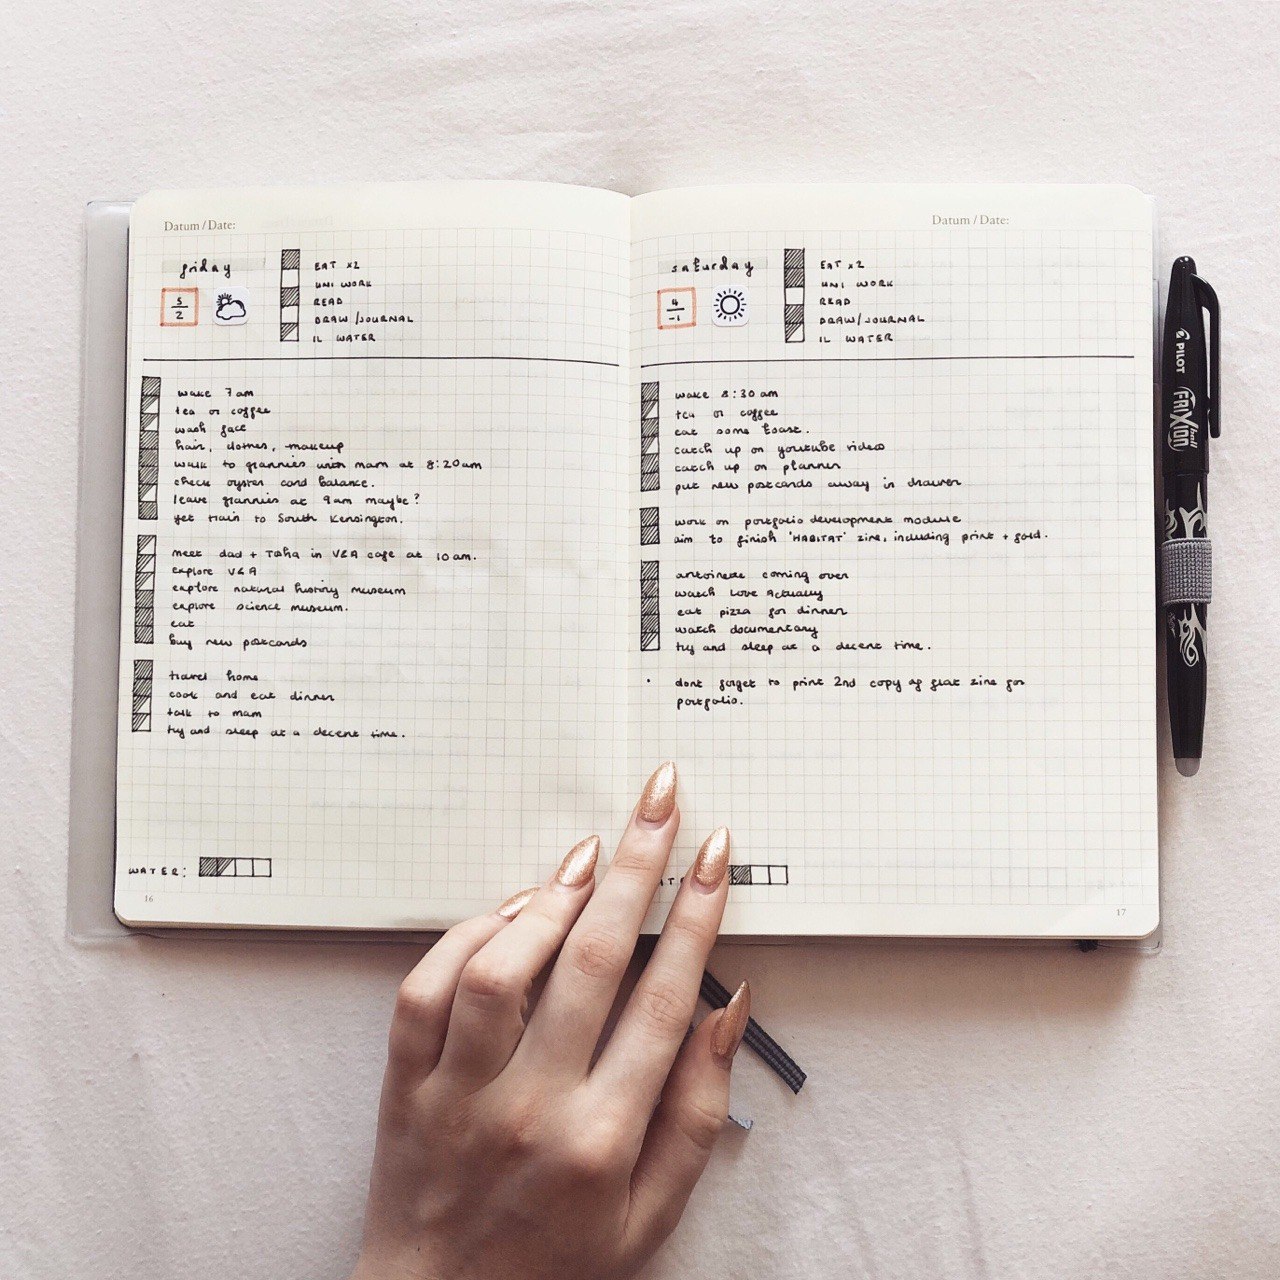 Datum / Date:
friday
5
2
EAT x2
UNI WORK
READ
DRAW / JOURNAL
1L WATER
wake 7am
tea or coffee
wash face
hair, clothes, makeup
walk to grannies with mam at 8:20am
check oyster card balance.
leave grannies at 9am maybe?
get train to South Kensington.
meet dad + Tasha in V&A cafe at 10am.
explore V&A
explore natural history museum
explore science museum.
eat
buy new postcards
travel home
cook and eat dinner
talk to mam
try and sleep at a decent time.
WATER:
16
Datum / Date:
saturday
4
-1
EAT x2
UNI WORK
READ
DRAW/JOURNAL
1L WATER
wake 8:30am
tea or coffee
eat some toast.
catch up on youtube videos
catch up on planner
put new postcards away in drawer
work on portfolio development module
aim to finish 'HABITAT' zine, including print + fold.
antoinette coming over
watch Love Actually
eat pizza for dinner
watch documentary
try and sleep at a decent time.
• dont forget to print 2nd copy of flat zine for
portfolio.
17
PILOT
FRIXION
ball